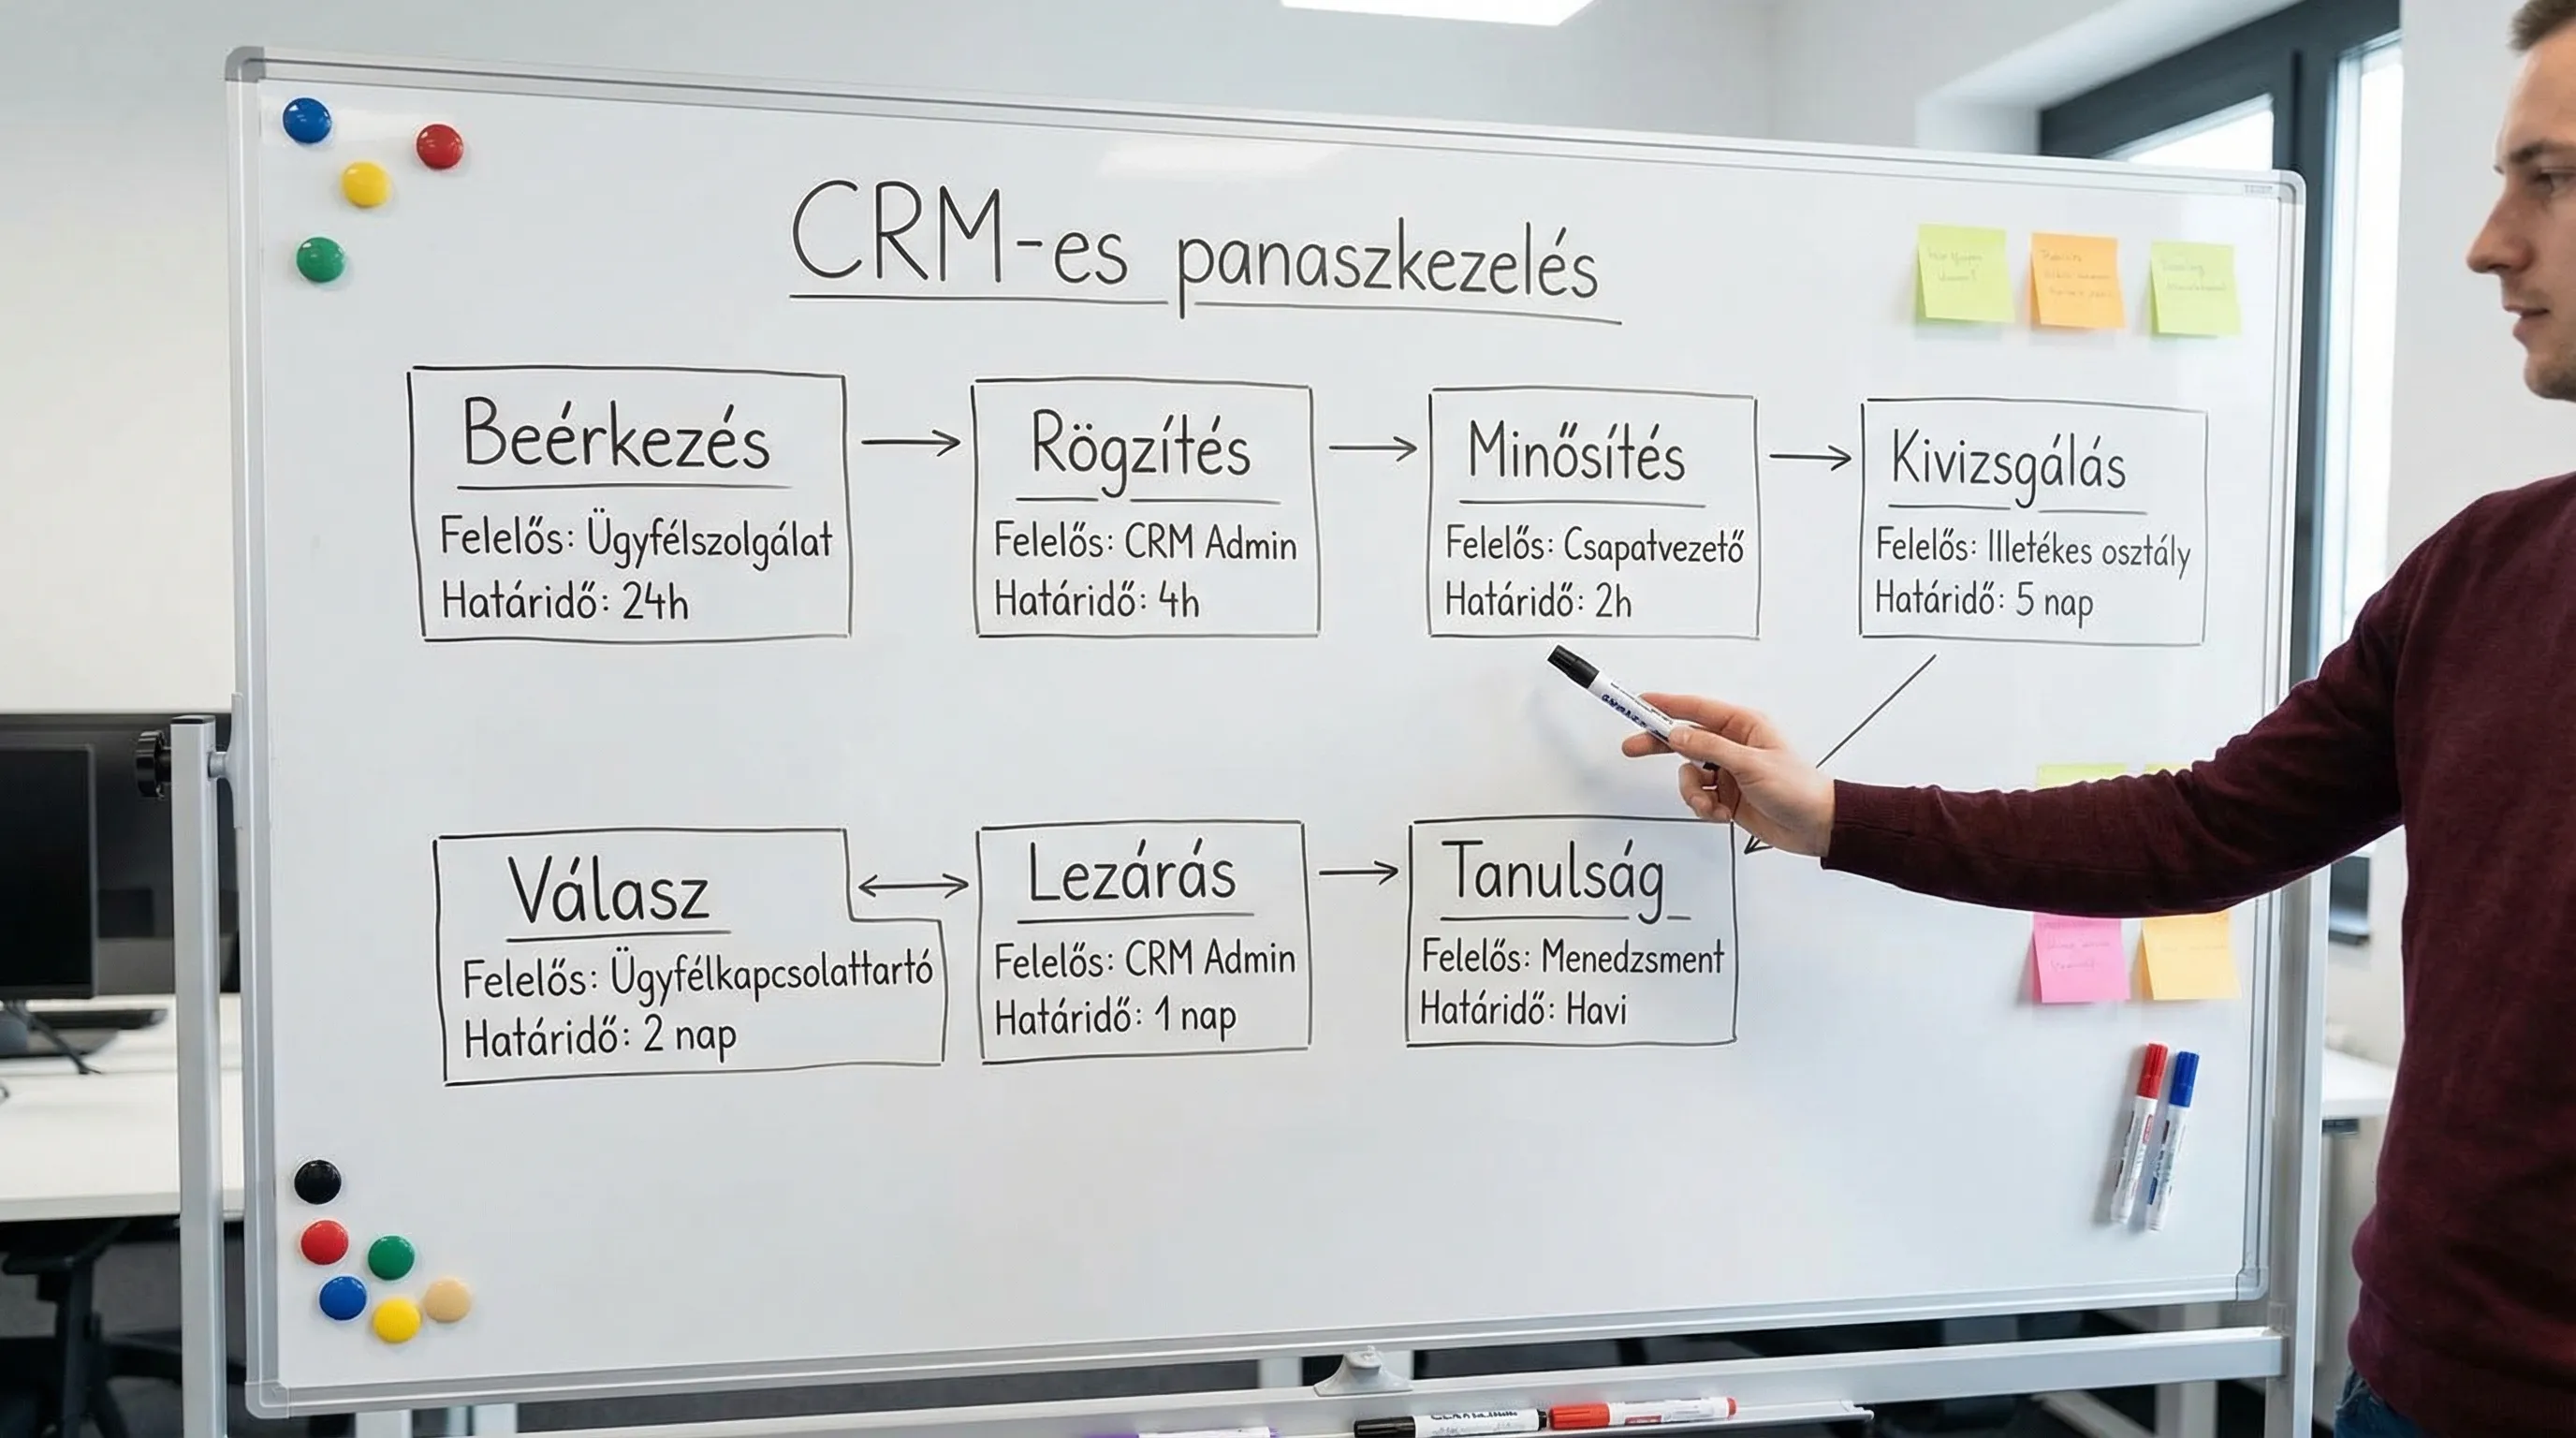 CRM-es panaszkezelés
Beérkezés
Felelős: Ügyfélszolgálat
Határidő: 24h
Rögzítés
Felelős: CRM Admin
Határidő: 4h
Minősítés
Felelős: Csapatvezető
Határidő: 2h
Kivizsgálás
Felelős: Illetékes osztály
Határidő: 5 nap
Válasz
Felelős: Ügyfélkapcsolattartó
Határidő: 2 nap
Lezárás
Felelős: CRM Admin
Határidő: 1 nap
Tanulság
Felelős: Menedzsment
Határidő: Havi